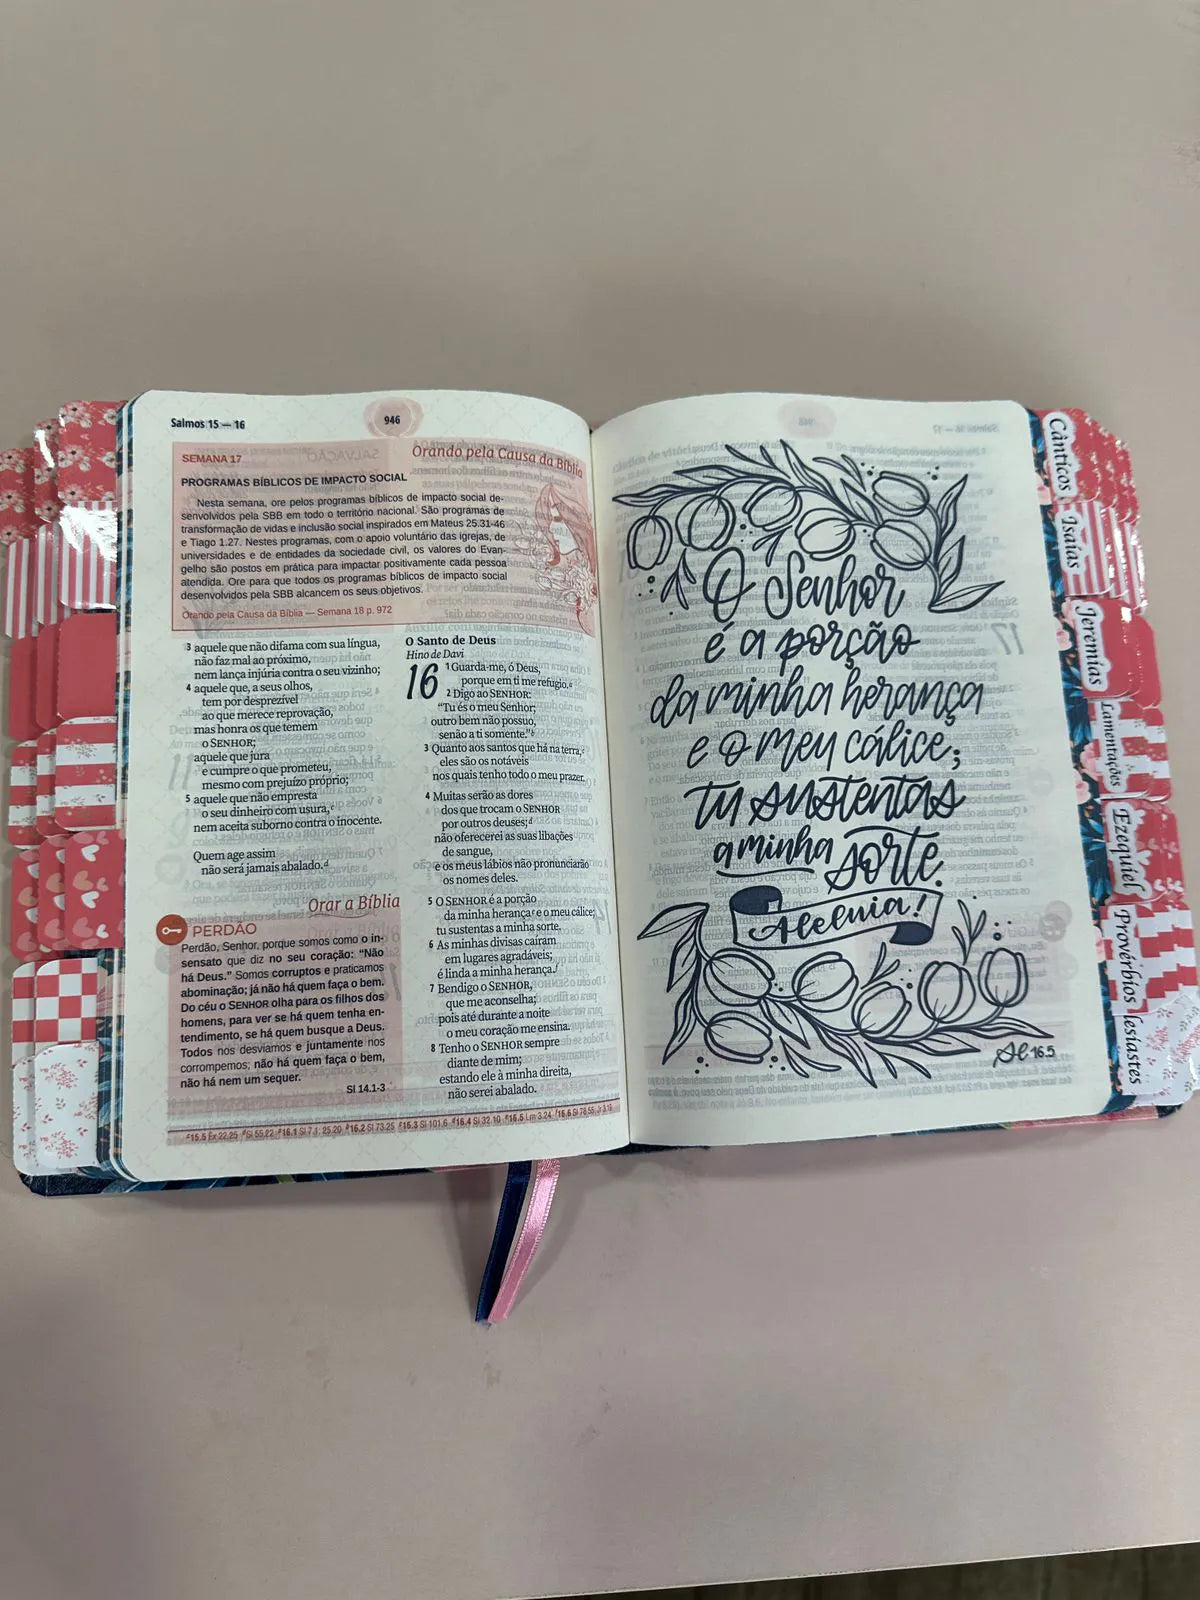 Salmos 15 — 16
946
SEMANA 17
Orando pela Causa da Bíblia
PROGRAMAS BÍBLICOS DE IMPACTO SOCIAL
Nesta semana, ore pelos programas bíblicos de impacto social de-
senvolvidos pela SBB em todo o território nacional. São programas de
transformação de vidas e inclusão social inspirados em Mateus 25.31-46
e Tiago 1.27. Nestes programas, com o apoio voluntário das igrejas, de
universidades e de entidades da sociedade civil, os valores do Evan-
gelho são postos em prática para impactar positivamente cada pessoa
atendida. Ore para que todos os programas bíblicos de impacto social
desenvolvidos pela SBB alcancem os seus objetivos.
Orando pela Causa da Bíblia — Semana 18 p. 972
3 aquele que não difama com sua língua,
não faz mal ao próximo,
nem lança injúria contra o seu vizinho;
4 aquele que, a seus olhos,
tem por desprezível
ao que merece reprovação,
mas honra os que temem
o SENHOR;
aquele que jura
e cumpre o que prometeu,
mesmo com prejuízo próprio;
5 aquele que não empresta
o seu dinheiro com usura,c
nem aceita suborno contra o inocente.
Quem age assim
não será jamais abalado.d
Orar a Bíblia
PERDÃO
Perdão, Senhor, porque somos como o in-
sensato que diz no seu coração: “Não
há Deus.” Somos corruptos e praticamos
abominação; já não há quem faça o bem.
Do céu o SENHOR olha para os filhos dos
homens, para ver se há quem tenha en-
tendimento, se há quem busque a Deus.
Todos nos desviamos e juntamente nos
corrompemos; não há quem faça o bem,
não há nem um sequer.
Sl 14.1-3
O Santo de Deus
Hino de Davi
16 1 Guarda-me, ó Deus,
porque em ti me refugio.a
2 Digo ao SENHOR:
“Tu és o meu Senhor;
outro bem não possuo,
senão a ti somente.”b
3 Quanto aos santos que há na terra,c
eles são os notáveis
nos quais tenho todo o meu prazer.
4 Muitas serão as dores
dos que trocam o SENHOR
por outros deuses;d
não oferecerei as suas libações
de sangue,
e os meus lábios não pronunciarão
os nomes deles.
5 O SENHOR é a porção
da minha herançae e o meu cálice;
tu sustentas a minha sorte.
6 As minhas divisas caíram
em lugares agradáveis;
é linda a minha herança.f
7 Bendigo o SENHOR,
que me aconselha;
pois até durante a noite
o meu coração me ensina.
8 Tenho o SENHOR sempre
diante de mim;
estando ele à minha direita,
não serei abalado.
c15.5 Êx 22.25 dSl 55.22 a16.1 Sl 7.1; 25.20 b16.2 Sl 73.25 c15.3 Sl 101.6 d16.4 Sl 32.10 e16.5 Lm 3.24 f16.6 Sl 78.55
O Senhor
é a porção
da minha herança
e o meu cálice;
tu sustentas
a minha sorte.
Aleluia!
Sl 16.5
Cânticos
Isaías
Jeremias
Lamentações
Ezequiel
Provérbios
lesiástes